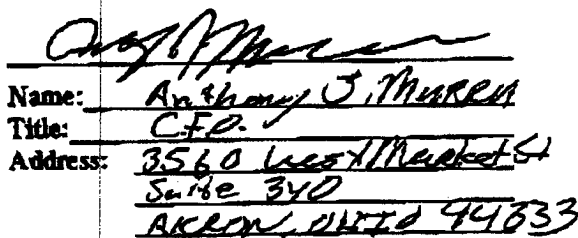 Name: Anthony J. Murru
Title: C.F.O.
Address: 3560 West Market St
Suite 340
AKRON, OHIO 44333